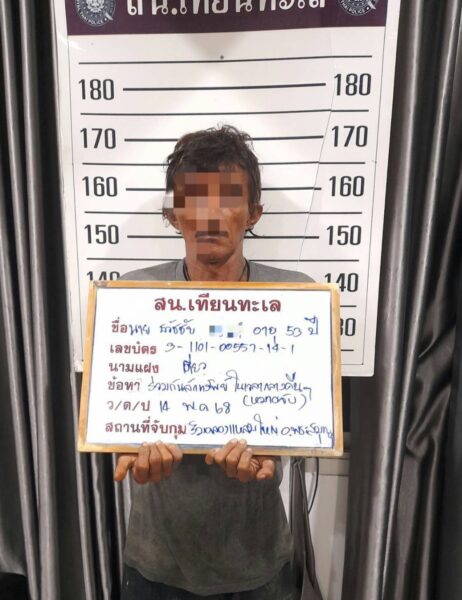 สน.เทียนทะเล
180 180
170 170
160 160
150 150
140 140
สน.เทียนทะเล
ชื่อ นาย ธวัชชัย อายุ 53 ปี
เลขบัตร 3-1101-00557-14-1
นามแฝง
ข้อหา ร่วมกันลักทรัพย์ ในเวลากลางคืนฯ
(หมายจับ)
ว/ด/ป 14 พ.ค 68
สถานที่จับกุม